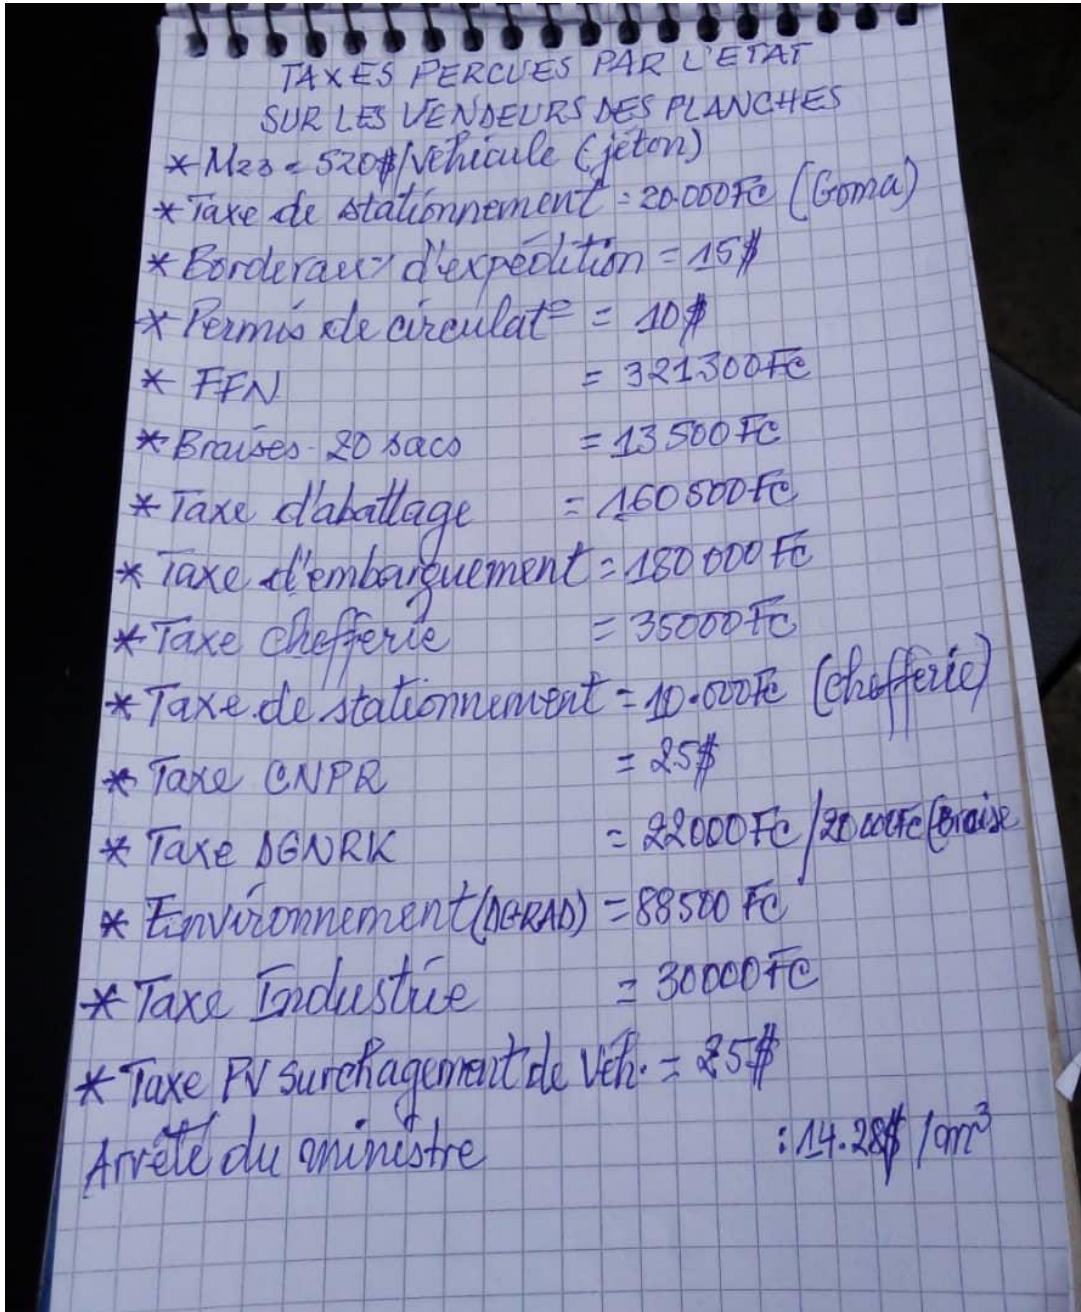 TAXES PERCUES PAR L'ETAT
SUR LES VENDEURS DES PLANCHES
* M23 = 520$/véhicule (jéton)
* Taxe de stationnement = 20.000Fc (Goma)
* Borderaux d'expédition = 15$
* Permis de circulat° = 10$
* FFN = 321300Fc
* Braises - 20 sacs = 13500 Fc
* Taxe d'abattage = 160500Fc
* Taxe d'embarquement = 180000 Fc
* Taxe chefferie = 35000Fc
* Taxe de stationnement = 10.000Fc (Chefferie)
* Taxe CNPR = 25$
* Taxe DGNRK = 22000Fc / 20000Fc (Braise
* Environnement (DGRAD) = 88500 Fc
* Taxe Industrie = 30000Fc
* Taxe PV surchagement de Véh. = 25$
Arrêté du ministre : 14.28$ / m³